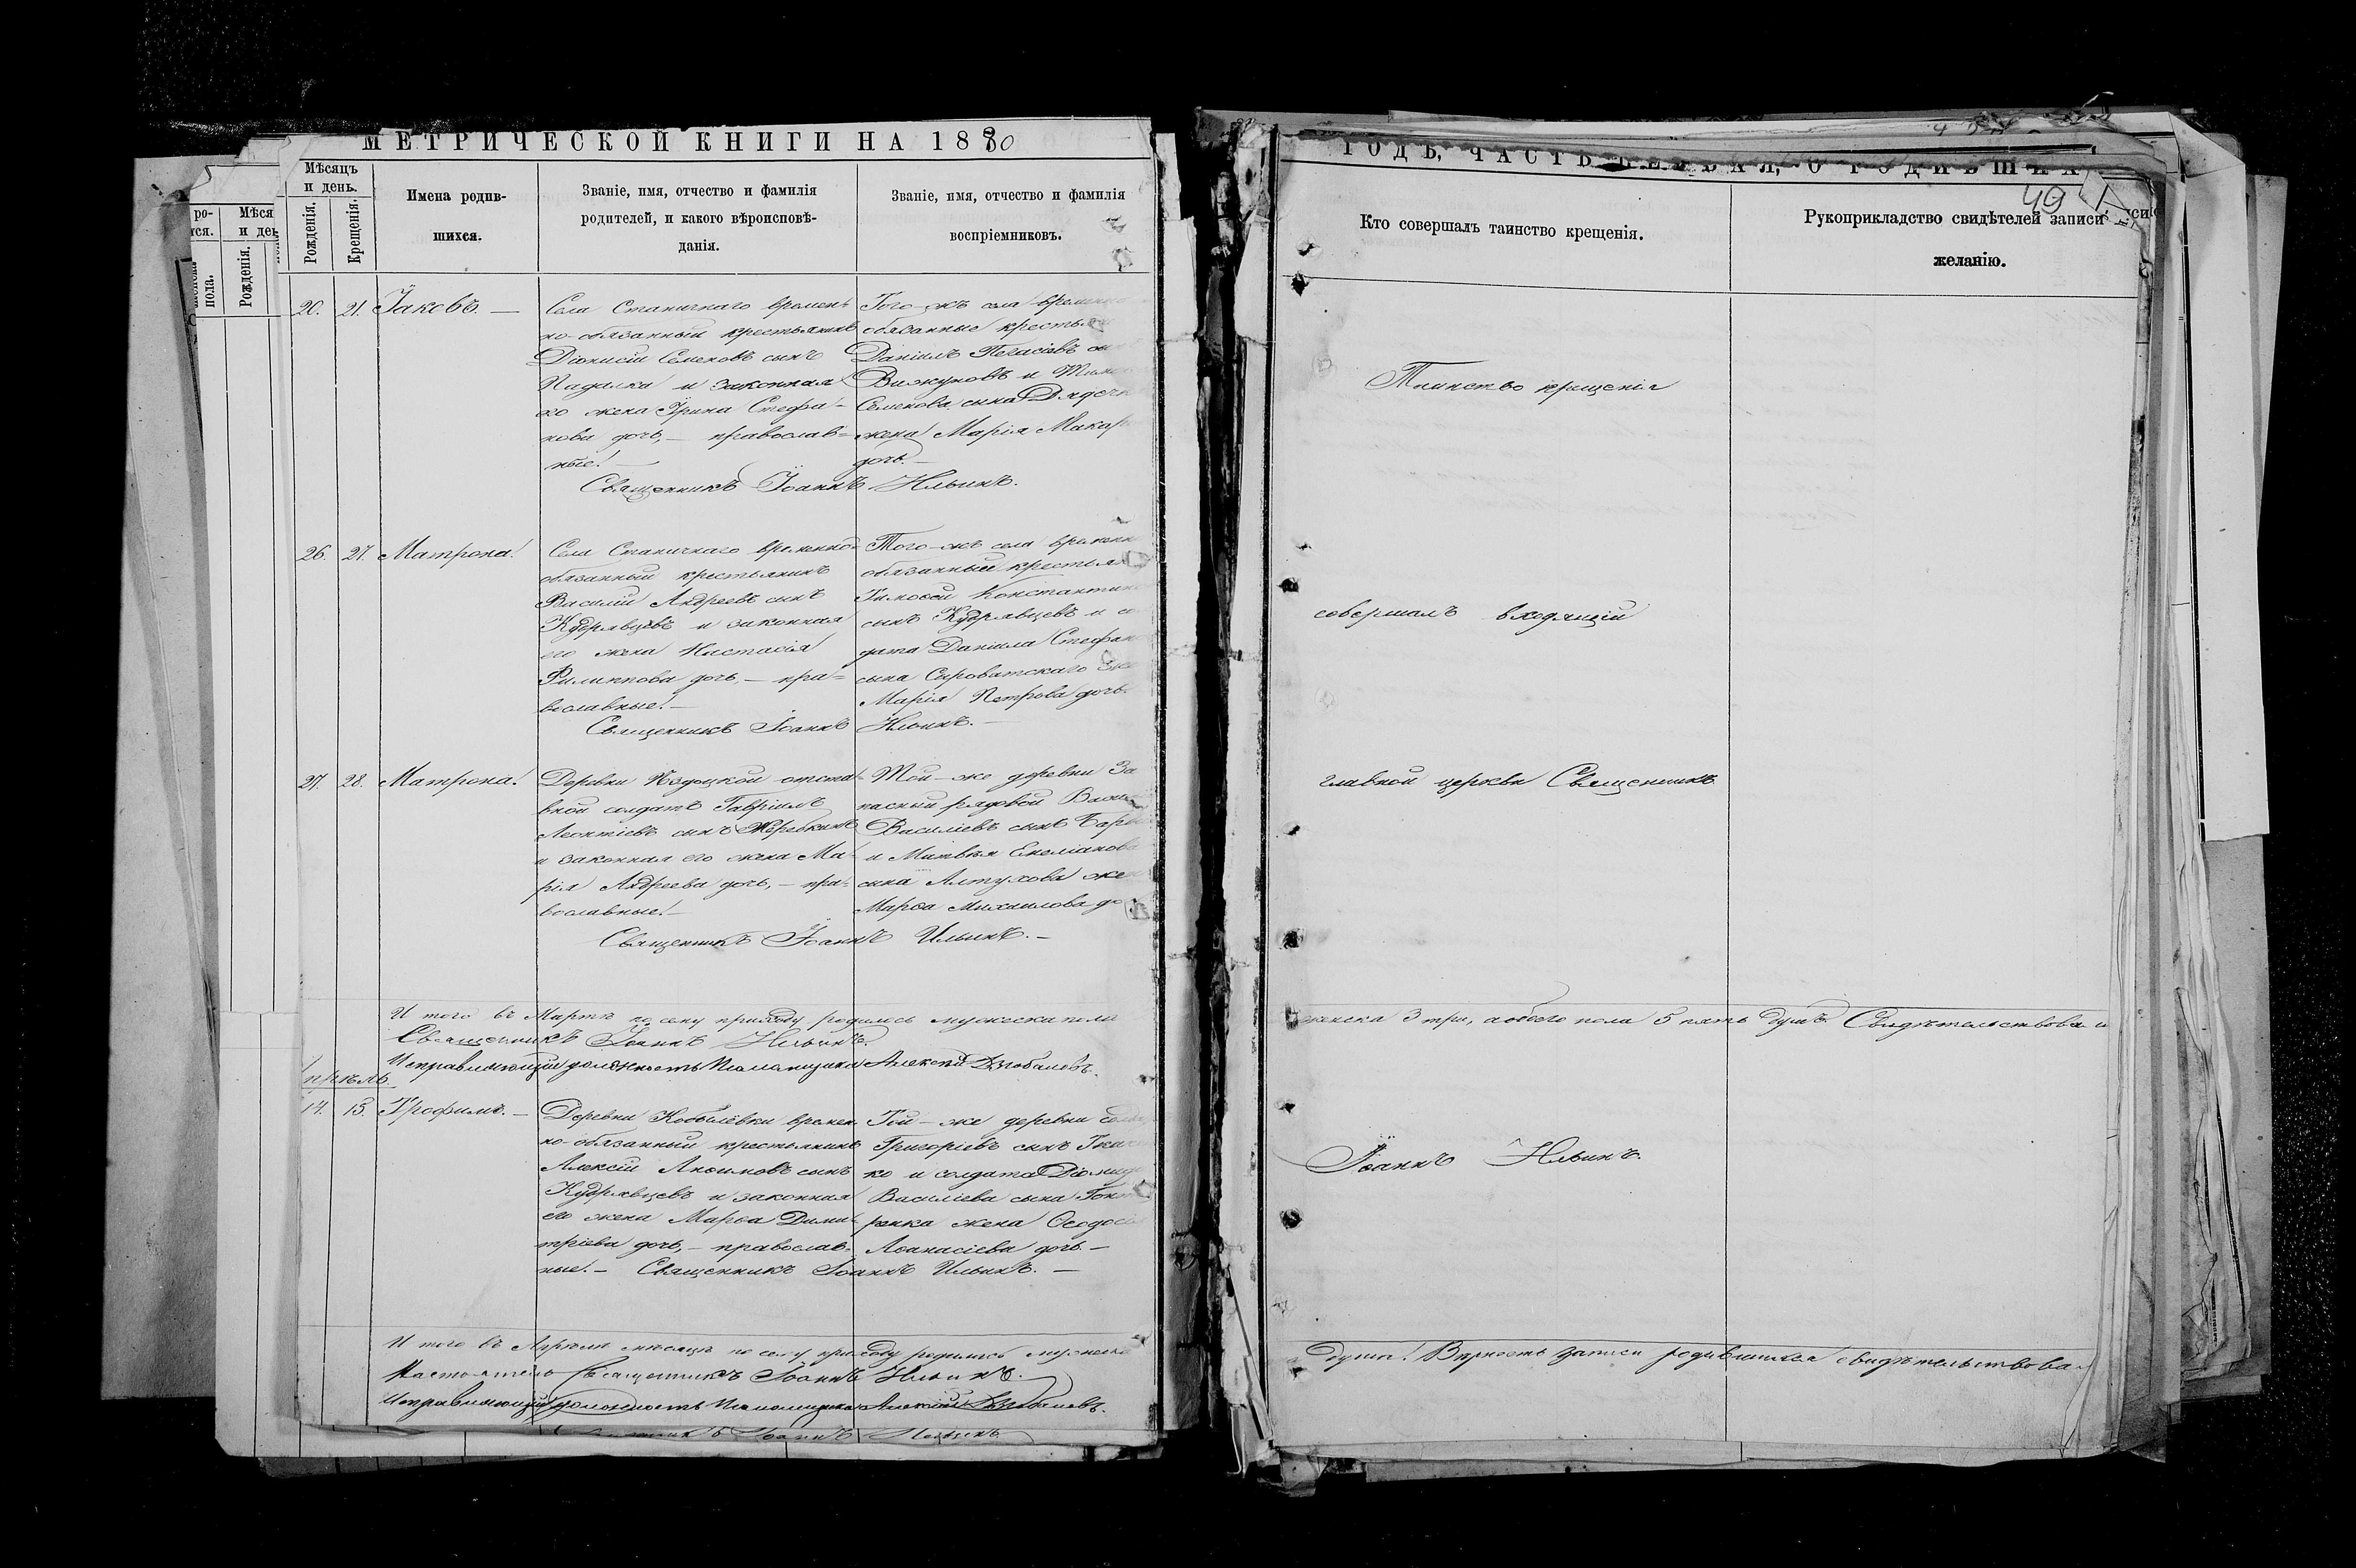 МЕТРИЧЕСКОЙ КНИГИ НА 1880
Мѣсяцъ и день.
Рожденія.
Крещенія.
Имена родившихся.
Званіе, имя, отчество и фамилія
родителей, и какого вѣроисповѣ-
данія.
Званіе, имя, отчество и фамилія
воспріемниковъ.
20. 21. Іаковъ. —
Села Станичнаго времен-
но-обязанный крестьянинъ
Діонисій Семеновъ сынъ
Падалка и законная
его жена Ірина Стефа-
нова дочь, — православ-
ные. —
Того-жъ села временно
обязанные крестья
Даніилъ
и
Семенова сына
жена Марія Макар
дочь. —
Священникъ Іоаннъ Ильинъ.
26. 27. Матрона.
Села Станичнаго временно-
обязанный крестьянинъ
Василій Андреевъ сынъ
Кудрявцевъ и законная
его жена Настасія
Филиппова дочь, — пра-
вославные. —
Того-жъ села временно
обязанный крестья
Тимоѳей Константин
сынъ Кудрявцевъ и со
дата Даніила Стефан
сына Сыроватскаго же
Марія Петрова дочь.
Священникъ Іоаннъ Ильинъ. —
27. 28. Матрона.
Деревни Яздоцкой отста-
вной солдатъ Гавріилъ
Леонтіевъ сынъ Жеребкинъ
и законная его жена Ма-
рія Андреева дочь, — пра-
вославные. —
Той-же деревни За
пасный рядовой Васил
Василіевъ сынъ
и Матвѣя Емеліанова
сына Алтухова жен
Марѳа Михаилова до
Священникъ Іоаннъ Ильинъ. —
И того въ Мартѣ по сему приходу родилось мужеска пола
Священникъ Іоаннъ Ильинъ.
Исправляющій должность Псаломщика Алексѣй
прѣль.
14. 15. Трофимъ. —
Деревни Кобылёвки времен
но-обязанный крестьянинъ
Алексій Анѳимовъ сынъ
Кудрявцевъ и законная
его жена Марѳа Дими-
тріева дочь, — православ-
ные. —
Той-же деревни
Григоріевъ сынъ Ткач
ко и солдата Діомид
Василіева сына Гон
ренка жена Ѳеодос
Аѳанасіева дочь —
Священникъ Іоаннъ Ильинъ. —
И того въ Апрѣлѣ мѣсяцѣ по сему приходу родилось мужеска
Настоятель Священникъ Іоаннъ Ильинъ.
Исправляющій должность Псаломщика Алексѣй
ГОДЪ, ЧАСТЬ ПЕРВАЯ, О РОДИВШИХ
49
Кто совершалъ таинство крещенія.
Рукоприкладство свидѣтелей записи
желанію.
Таинство крещенія
совершалъ
главной церкви Священникъ
Іоаннъ Ильинъ.
женска 3 три, а обоего пола 5 пять душъ. Свидѣтельствова и
душа. Вѣрность записи родившихся свидѣтельствова